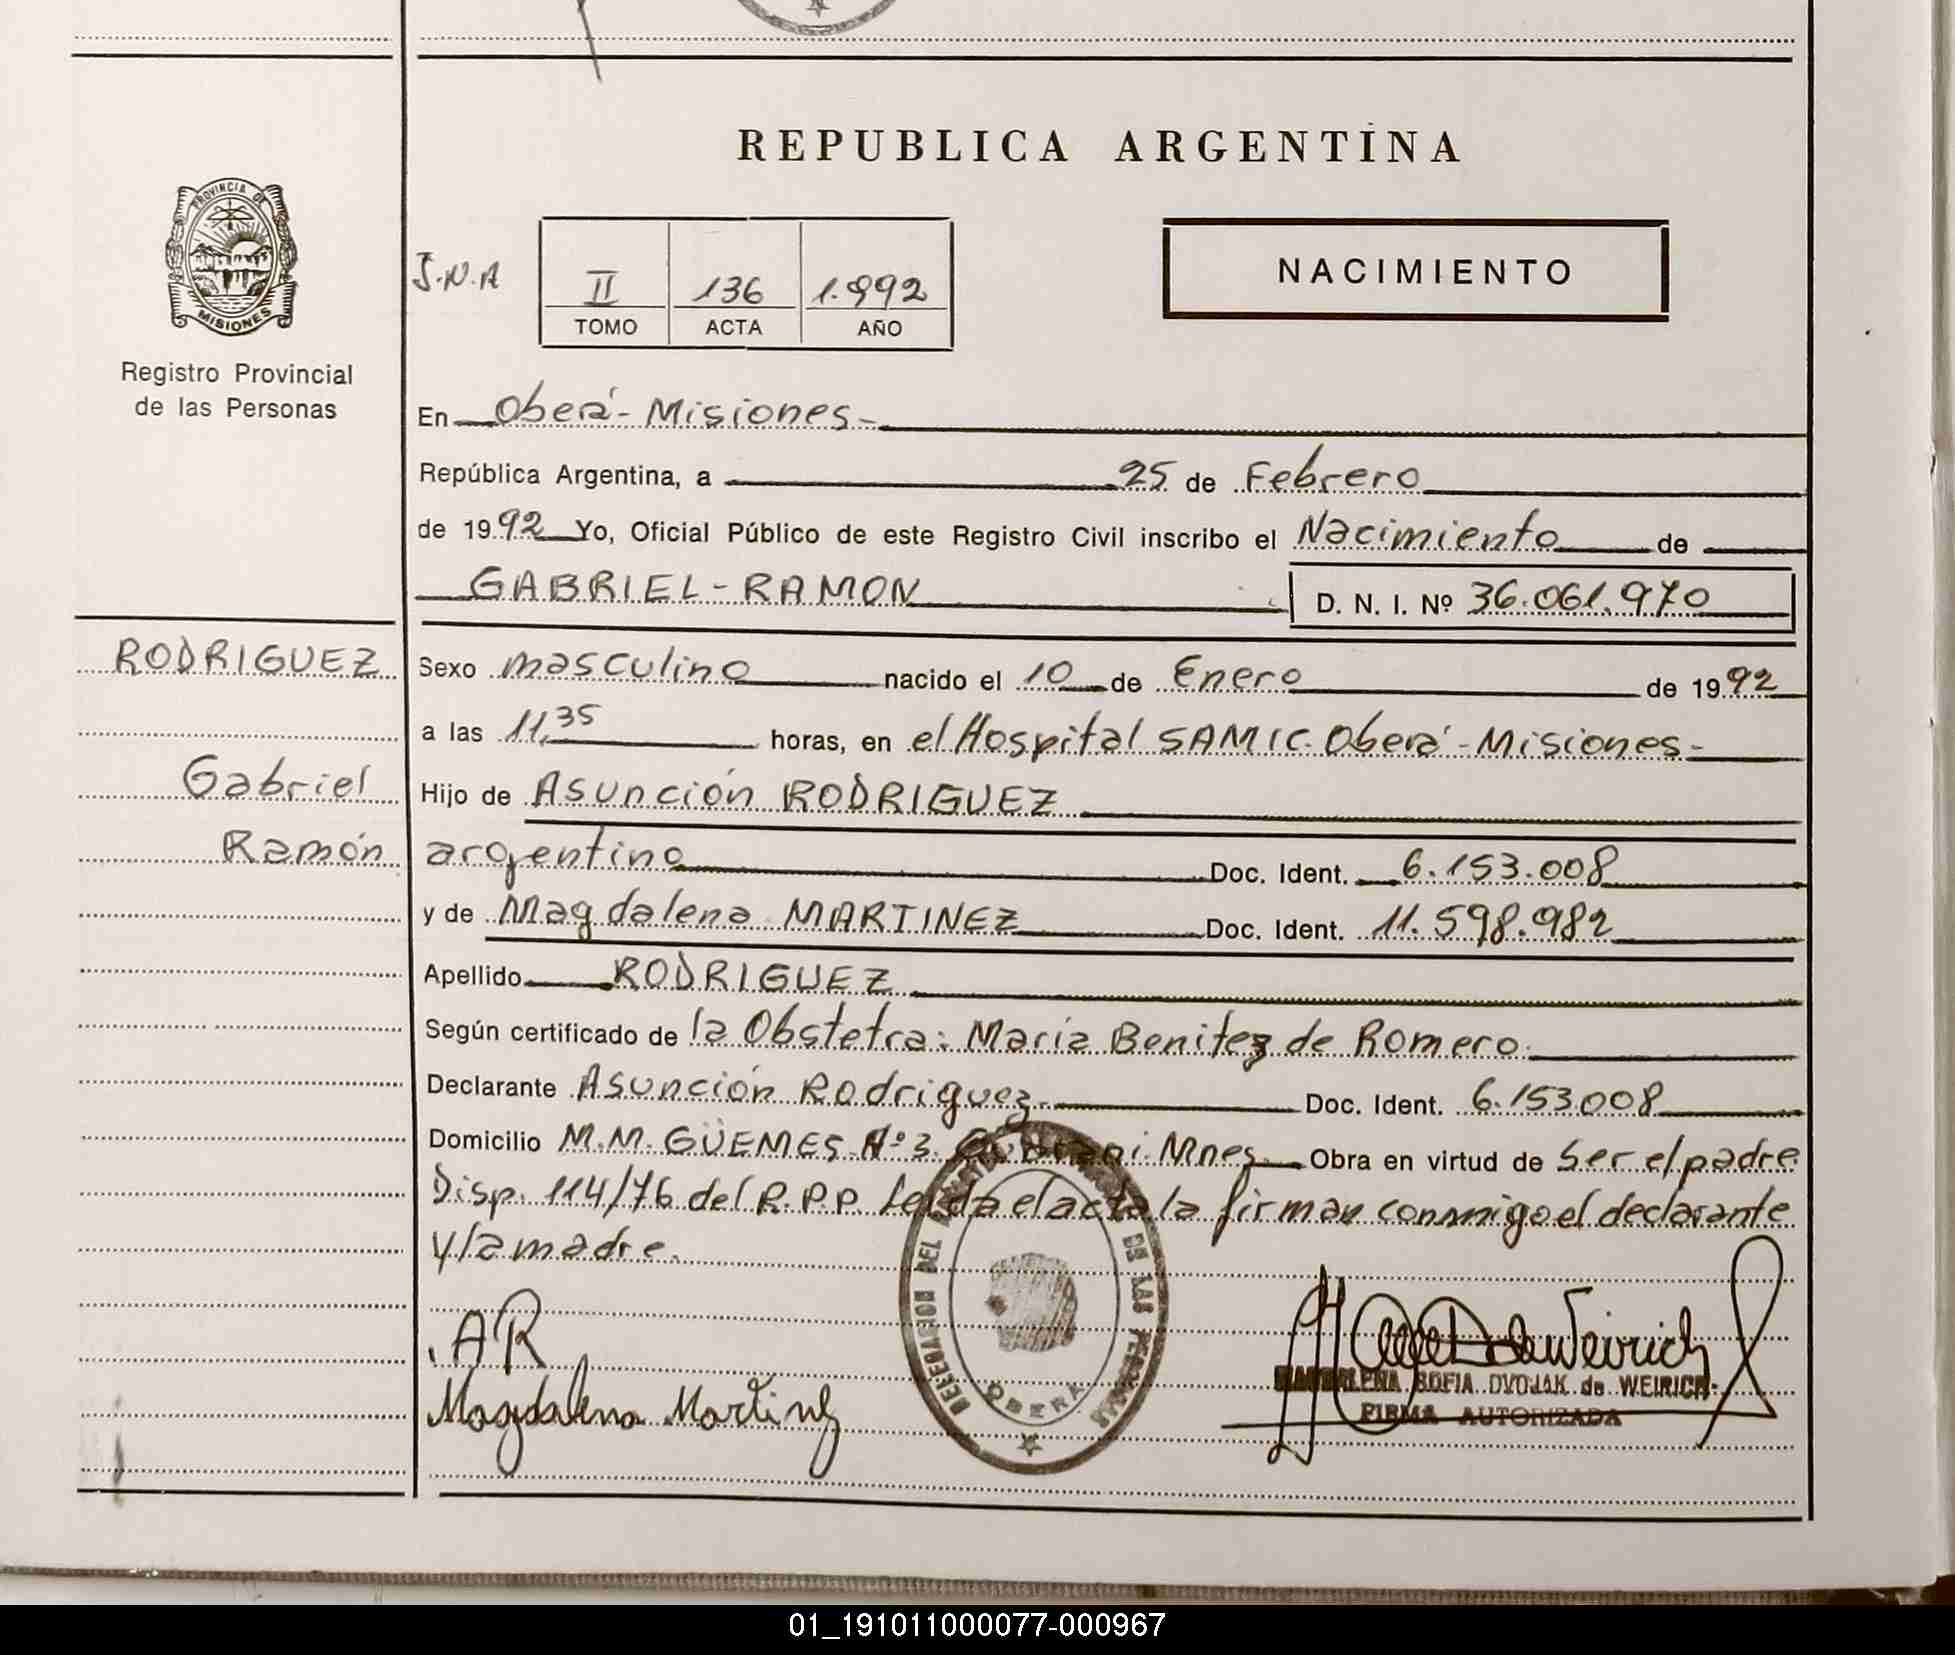 REPUBLICA ARGENTINA
PROVINCIA DE
MISIONES
Registro Provincial
de las Personas
J.N.A
II 136 1.992
TOMO ACTA AÑO
NACIMIENTO
En Oberá - Misiones -
República Argentina, a 25 de Febrero
de 1992 Yo, Oficial Público de este Registro Civil inscribo el Nacimiento de
GABRIEL - RAMON D. N. I. Nº 36.061.970
RODRIGUEZ
Gabriel
Ramón
Sexo masculino nacido el 10 de Enero de 1992
a las 11,35 horas, en el Hospital SAMIC. Oberá - Misiones -
Hijo de Asunción RODRIGUEZ
argentino Doc. Ident. 6.153.008
y de Magdalena MARTINEZ Doc. Ident. 11.598.982
Apellido RODRIGUEZ
Según certificado de la Obstetra: María Benitez de Romero.
Declarante Asunción Rodriguez Doc. Ident. 6.153008
Domicilio M.M. GÜEMES Nº 3. Mnes. Obra en virtud de Ser el padre
Disp. 114/76 del R.P.P. Leida el acta la firman conmigo el declarante
y la madre.
DELEGACION DEL DE LAS PERSONAS
OBERA
AR
Magdalena Martinez
MAGDALENA SOFIA DVOJAK de WEIRICH
FIRMA AUTORIZADA
01_191011000077-000967